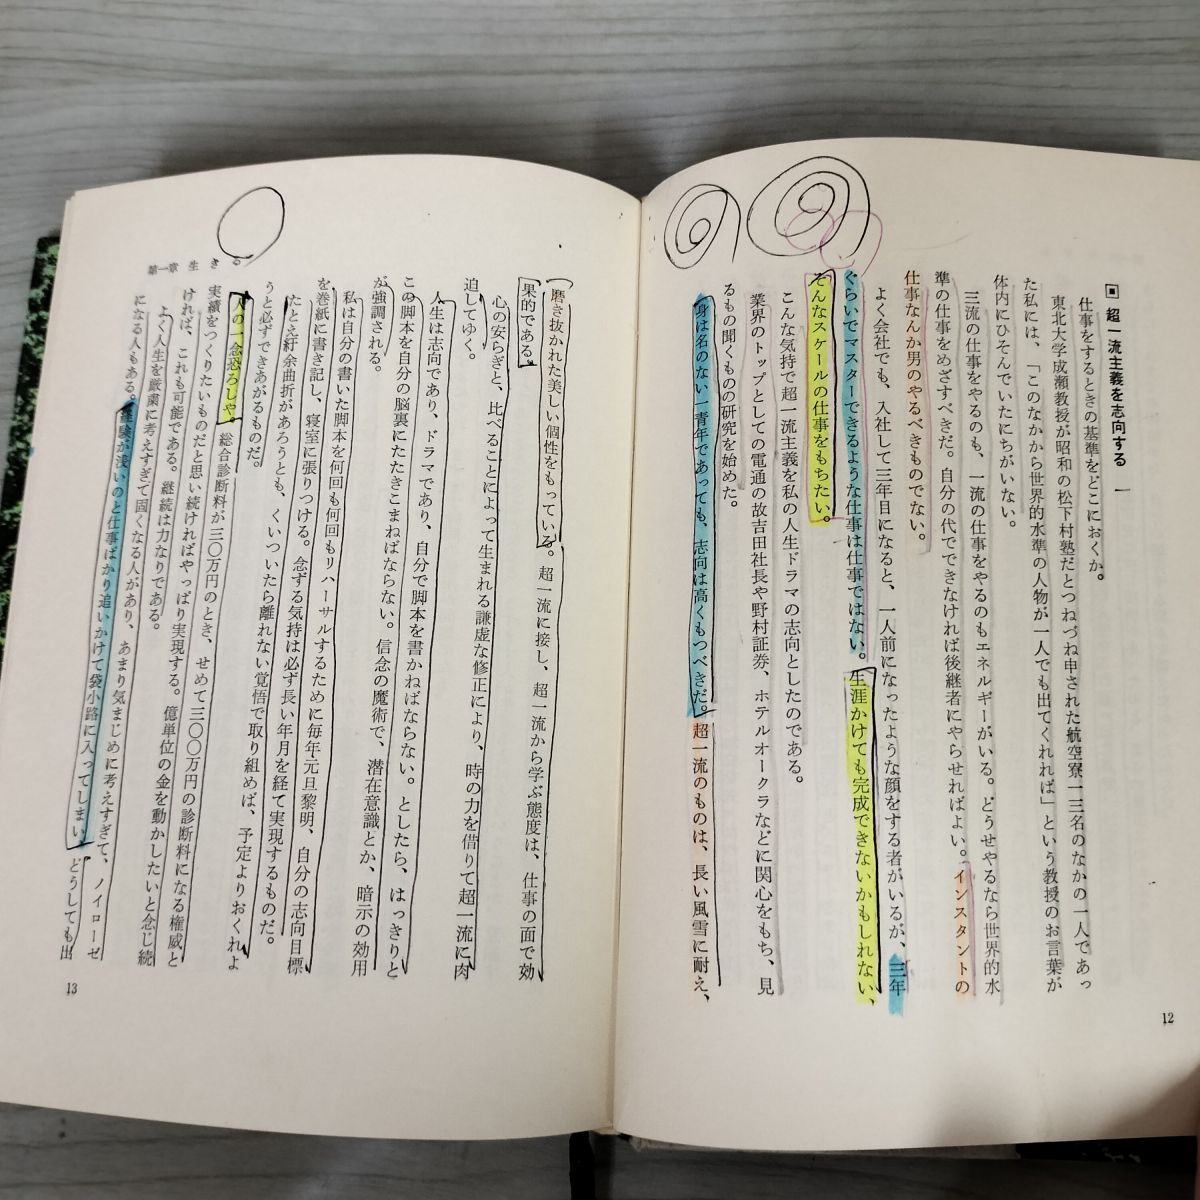 超一流主義を志向する 一
仕事をするときの基準をどこにおくか。
東北大学成瀬教授が昭和の松下村塾だとつねづね申された航空寮一三名のなかの一人であっ
た私には、「このなかから世界的水準の人物が一人でも出てくれれば」という教授のお言葉が
体内にひそんでいたにちがいない。
三流の仕事をやるのも、一流の仕事をやるのもエネルギーがいる。どうせやるなら世界的水
準の仕事をめざすべきだ。自分の代でできなければ後継者にやらせればよい。インスタントの
仕事なんか男のやるべきものでない。
よく会社でも、入社して三年目になると、一人前になったような顔をする者がいるが、三年
ぐらいでマスターできるような仕事は仕事ではない。生涯かけても完成できないかもしれない、
そんなスケールの仕事をもちたい。
こんな気持で超一流主義を私の人生ドラマの志向としたのである。
業界のトップとしての電通の故吉田社長や野村証券、ホテルオークラなどに関心をもち、見
るもの聞くものの研究を始めた。
身は名のない一青年であっても、志向は高くもつべきだ。超一流のものは、長い風雪に耐え、
12
磨き抜かれた美しい個性をもっている。超一流に接し、超一流から学ぶ態度は、仕事の面で効
果的である。
心の安らぎと、比べることによって生まれる謙虚な修正により、時の力を借りて超一流に肉
迫してゆく。
人生は志向であり、ドラマであり、自分で脚本を書かねばならない。としたら、はっきりと
この脚本を自分の脳裏にたたきこまねばならない。信念の魔術で、潜在意識とか、暗示の効用
が強調される。
私は自分の書いた脚本を何回も何回もリハーサルするために毎年元旦黎明、自分の志向目標
を巻紙に書き記し、寝室に張りつける。念ずる気持は必ず長い年月を経て実現するものだ。
たとえ紆余曲折があろうとも、くいついたら離れない覚悟で取り組めば、予定よりおくれよ
うと必ずできあがるものだ。
人の一念恐ろしや。総合診断料が三〇万円のとき、せめて三〇〇万円の診断料になる権威と
実績をつくりたいものだと思い続ければやっぱり実現する。億単位の金を動かしたいと念じ続
ければ、これも可能である。継続は力なりである。
よく人生を厳粛に考えすぎて固くなる人があり、あまり気まじめに考えすぎて、ノイローゼ
になる人もある。経験が浅いのと仕事ばかり追いかけて袋小路に入ってしまい、どうしても出
第一章 生きる
13